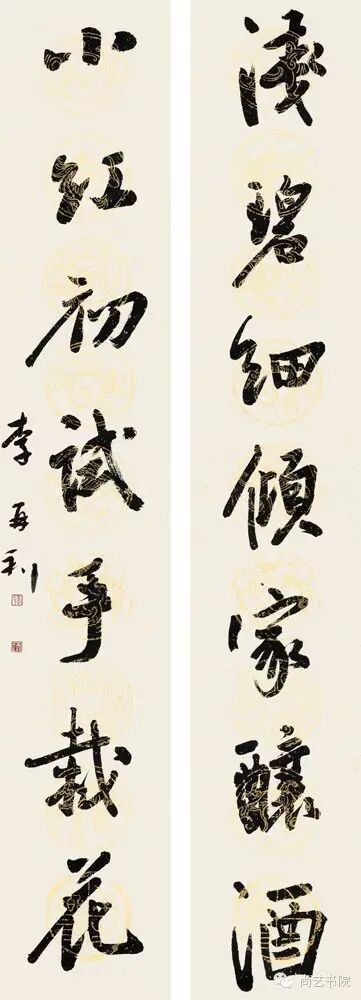 淺碧細傾家釀酒
小紅初試手栽花
李再利
尚艺书院